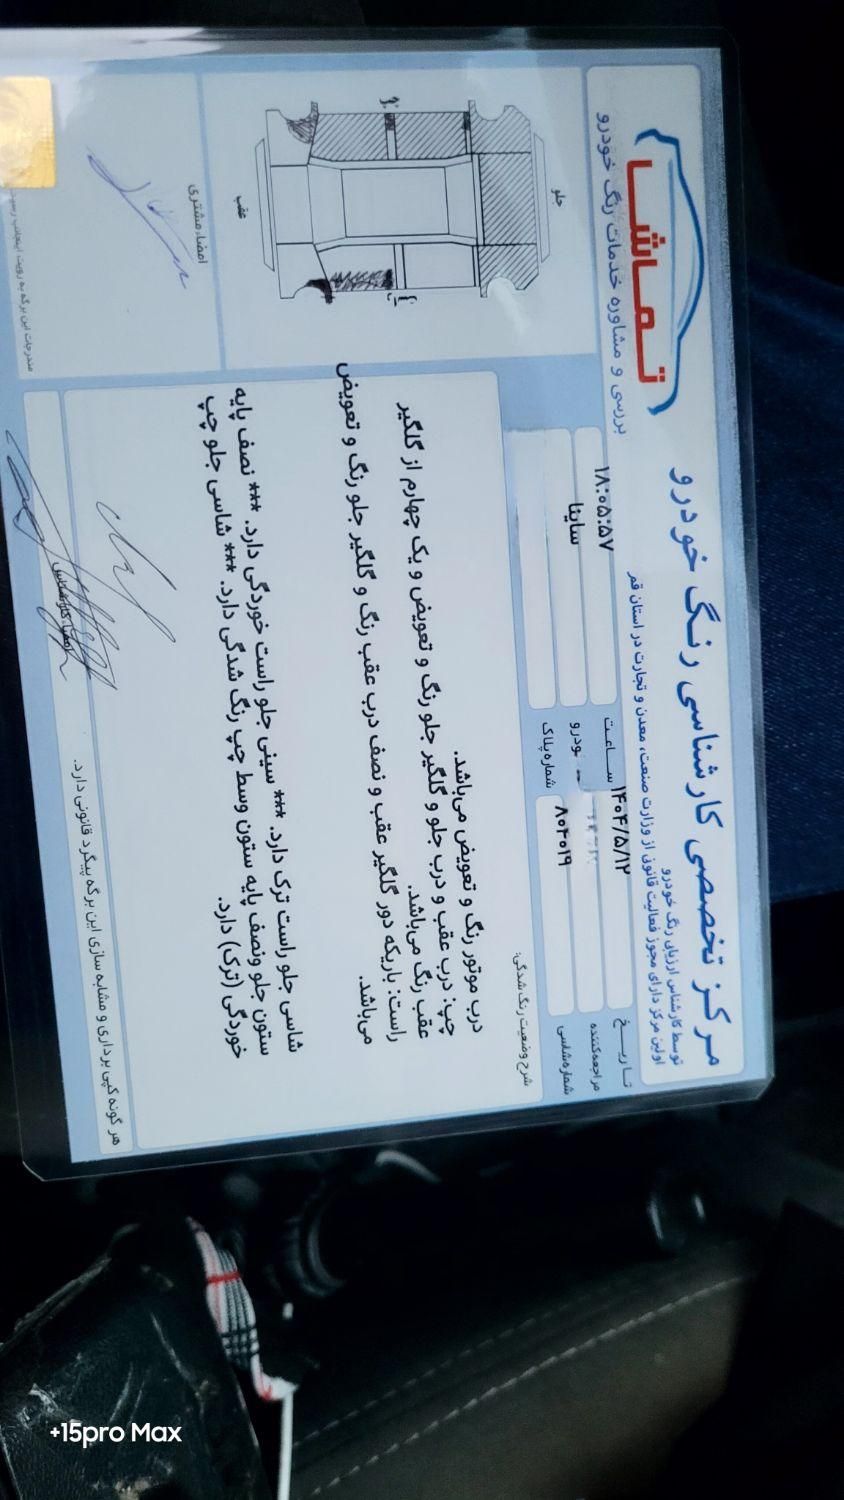 تماشا
بررسی و مشاوره خدمات رنگ خودرو
مرکز تخصصی کارشناسی رنگ خودرو
توسط کارشناس ارزیابی رنگ خودرو
اولین مرکز دارای مجوز فعالیت قانونی از وزارت صنعت، معدن و تجارت در استان قم
تاریخ ۱۴۰۴/۵/۱۲ ساعت ۱۸:۰۵:۵۷
مراجعه‌کننده خودرو ساینا
شماره‌شاسی ۸۰۲۰۱۹ شماره‌پلاک
شرح وضعیت رنگ شدگی:
درب موتور رنگ و تعویض می‌باشد.
چپ: درب عقب و درب جلو و گلگیر جلو رنگ و تعویض و یک چهارم از گلگیر
عقب رنگ می‌باشد.
راست: باریکه دور گلگیر عقب و نصف درب عقب رنگ و گلگیر جلو رنگ و تعویض
می‌باشد.
شاسی جلو راست ترک دارد. *** سینی جلو راست خوردگی دارد. *** نصف پایه
ستون جلو ونصف پایه ستون وسط چپ رنگ شدگی دارد. *** شاسی جلو چپ
خوردگی (ترک) دارد.
جلو
عقب
امضاء مشتری
امضاء کارشناس
هر گونه کپی برداری و مشابه سازی این برگه پیگرد قانونی دارد.
مندرجات این برگه به رویت اینجانب
+15pro Max